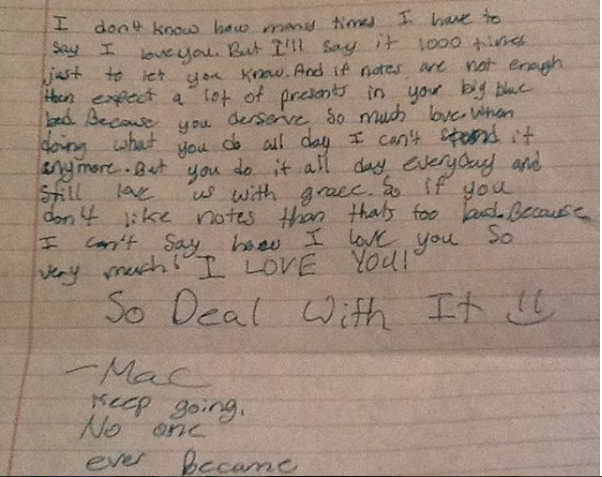 I don't know how many times I have to
say I love you. But I'll say it 1000 times
just to let you know. And if notes are not enough
then expect a lot of presents in your big blue
bed. Because you derserve so much love. When
doing what you do all day I can't stand it
anymore. But you do it all day everyday and
still love us with grace. So if you
don't like notes than thats too bad. Because
I can't say how I love you so
very much! I LOVE YOU!
So Deal With It
-Mac
Keep going.
No one
ever Became